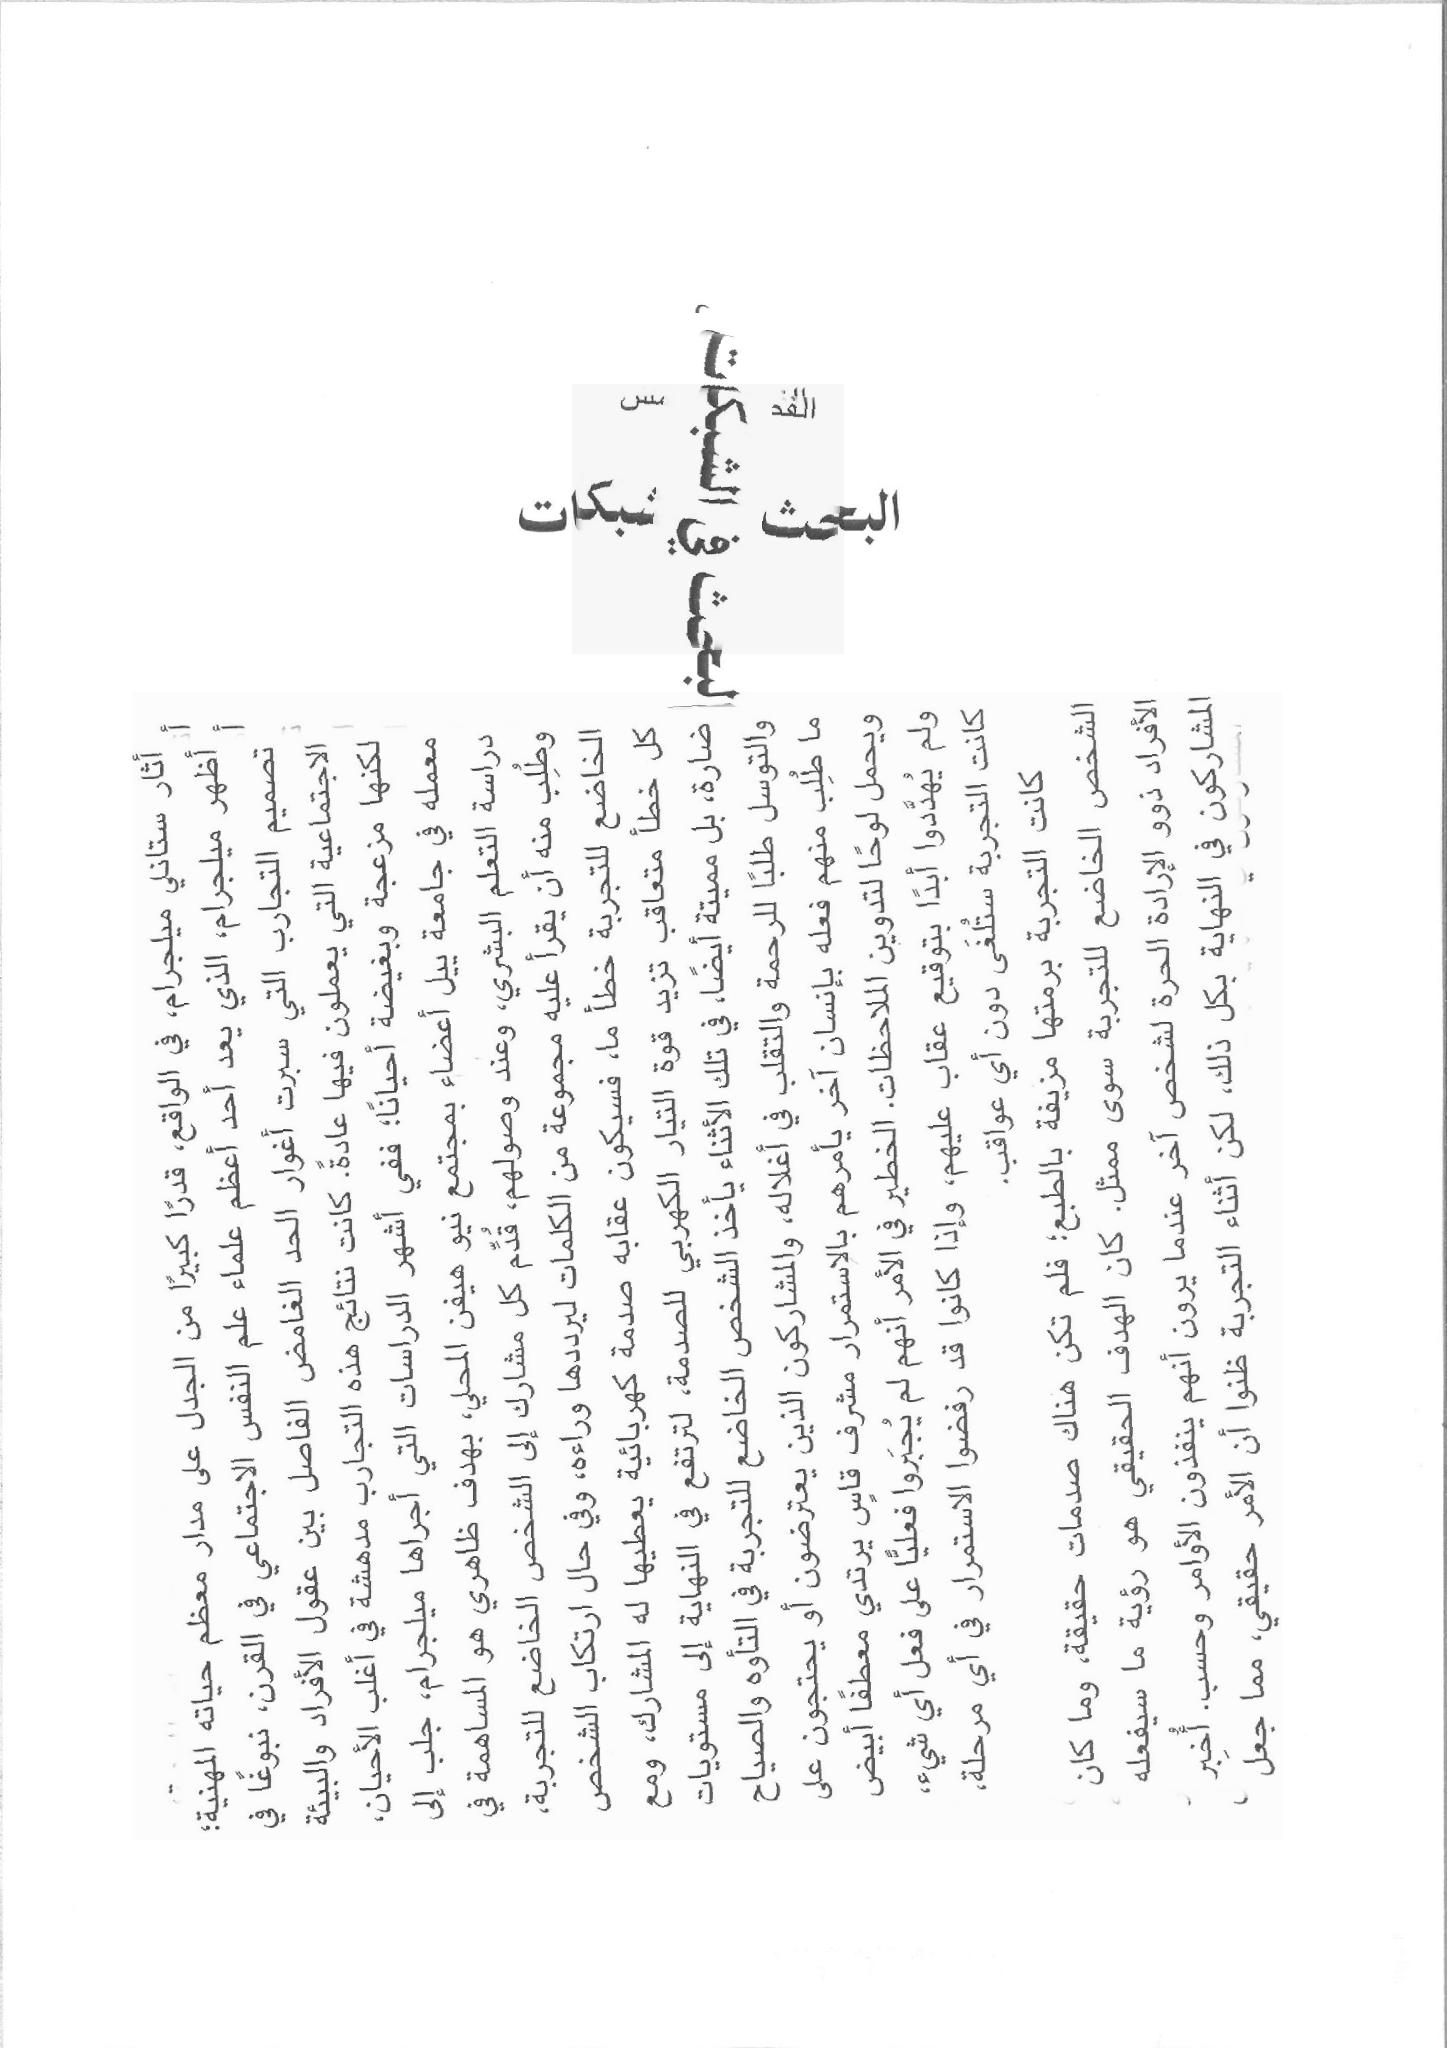 البحث في الشبكات
البحث شبكات
أثار ستانلي ميلجرام، في الواقع، قدرًا كبيرًا من الجدل على مدار معظم حياته المهنية؛
أظهر ميلجرام، الذي يعد أحد أعظم علماء علم النفس الاجتماعي في القرن، نبوغًا في
تصميم التجارب التي سبرت أغوار الحد الغامض الفاصل بين عقول الأفراد والبيئة
الاجتماعية التي يعملون فيها عادةً. كانت نتائج هذه التجارب مدهشة في أغلب الأحيان،
لكنها مزعجة وبغيضة أحيانًا؛ ففي أشهر الدراسات التي أجراها ميلجرام، جلب إلى
معمله في جامعة ييل أعضاء بمجتمع نيو هيفن المحلي، بهدف ظاهري هو المساهمة في
دراسة التعلم البشري، وعند وصولهم، قُدِّم كل مشارك إلى الشخص الخاضع للتجربة،
وطُلِب منه أن يقرأ عليه مجموعة من الكلمات ليرددها وراءه، وفي حال ارتكاب الشخص
الخاضع للتجربة خطأ ما، فسيكون عقابه صدمة كهربائية يعطيها له المشارك، ومع
كل خطأ متعاقب تزيد قوة التيار الكهربي للصدمة، لترتفع في النهاية إلى مستويات
ضارة، بل مميتة أيضًا، في تلك الأثناء يأخذ الشخص الخاضع للتجربة في التأوه والصياح
والتوسل طلبًا للرحمة والتقلب في أغلاله، والمشاركون الذين يعترضون أو يحتجون على
ما طُلِب منهم فعله بإنسان آخر يأمرهم بالاستمرار مشرف قاسٍ يرتدي معطفًا أبيض
ويحمل لوحًا لتدوين الملاحظات. الخطير في الأمر أنهم لم يُجبَروا فعليًّا على فعل أي شيء،
ولم يُهدَّدوا أبدًا بتوقيع عقاب عليهم، وإذا كانوا قد رفضوا الاستمرار في أي مرحلة،
كانت التجربة ستُلغَى دون أي عواقب.
كانت التجربة برمتها مزيفة بالطبع؛ فلم تكن هناك صدمات حقيقة، وما كان
الشخص الخاضع للتجربة سوى ممثل. كان الهدف الحقيقي هو رؤية ما سيفعله
الأفراد ذوو الإرادة الحرة لشخص آخر عندما يرون أنهم ينفذون الأوامر وحسب. أُخبِر
المشاركون في النهاية بكل ذلك، لكن أثناء التجربة ظنوا أن الأمر حقيقي، مما جعل